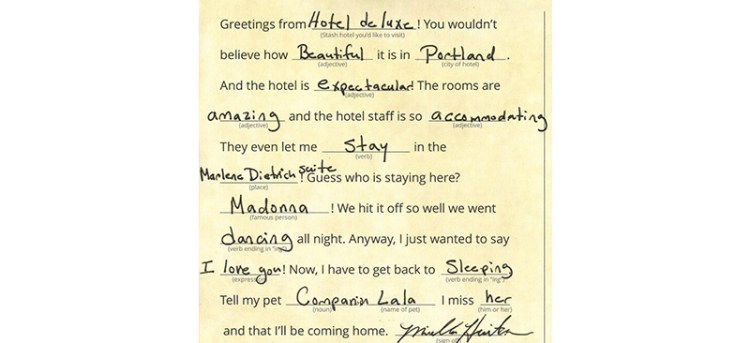 Greetings from Hotel de luxe! You wouldn't
(Stash hotel you'd like to visit)
believe how Beautiful it is in Portland.
(adjective) (city of hotel)
And the hotel is expectacular! The rooms are
(adjective)
amazing and the hotel staff is so accommodating
(adjective) (adjective)
They even let me stay in the
(verb)
Marlene Dietrich suite! Guess who is staying here?
(place)
Madonna! We hit it off so well we went
(famous person)
dancing all night. Anyway, I just wanted to say
(verb ending in "ing")
I love you! Now, I have to get back to Sleeping
(expression) (verb ending in "ing")
Tell my pet Companin Lala I miss her
(noun) (name of pet) (him or her)
and that I'll be coming home.